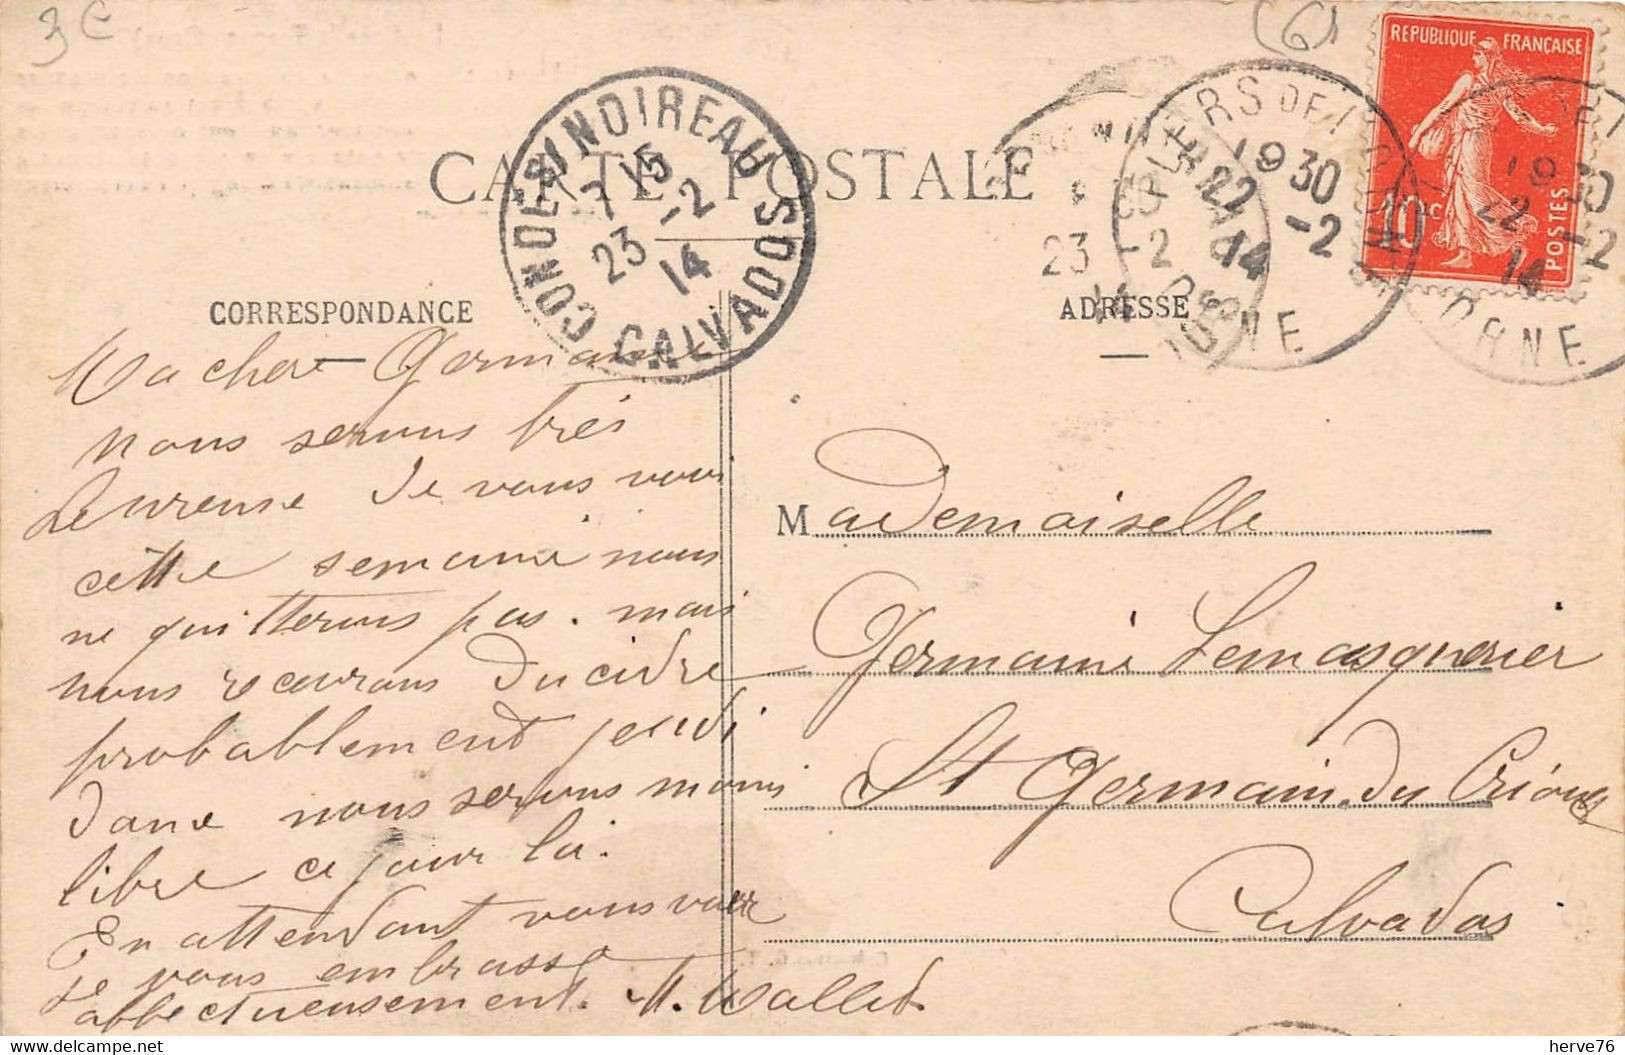 3 €
(6)
REPUBLIQUE FRANÇAISE
10 c
POSTES
CONDE S/NOIREAU
7 15
23 -2
14
CALVADOS
FLERS DE L'ORNE
19 30
22 -2
14
ORNE
19 30
22 -2
14
ORNE
23 -2
14
CARTE POSTALE
CORRESPONDANCE
ADRESSE
Ma chere Germaine
nous serons très
heureuse de vous voir
cette semaine nous
ne quitterons pas. mais
nous recevrons du cidre
probablement jeudi
donc nous serons moins
libre ce jour là.
En attendant vous voir
je vous embrasse
affectueusement. M. Wallet
Mademoiselle
Germaine Lemasquerier
St Germain du Crioux
Calvados
herve76